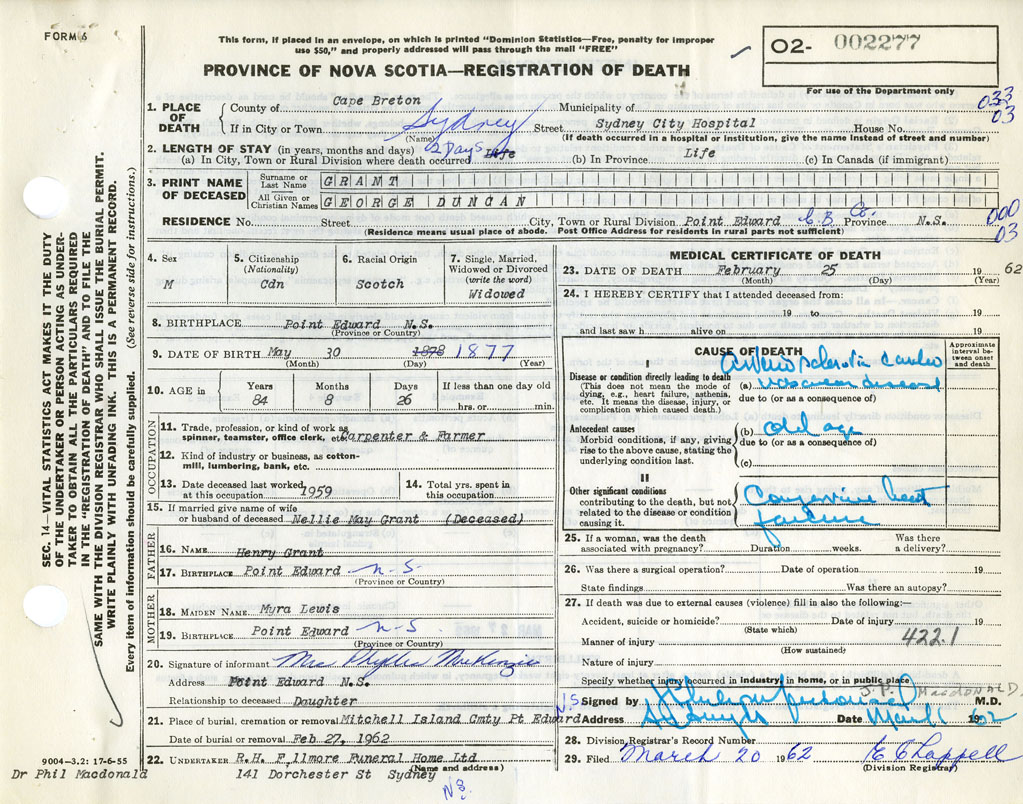 FORM 6
This form, if placed in an envelope, on which is printed "Dominion Statistics—Free, penalty for improper
use $50," and properly addressed will pass through the mail "FREE"
O2- 002277
PROVINCE OF NOVA SCOTIA—REGISTRATION OF DEATH
For use of the Department only
033
03
1. PLACE OF DEATH
County of Cape Breton Municipality of
If in City or Town Sydney Street Sydney City Hospital House No.
(Name) (If death occurred in a hospital or institution, give the name instead of street and number)
2. LENGTH OF STAY (in years, months and days)
(a) In City, Town or Rural Division where death occurred 2 Days Life (b) In Province Life (c) In Canada (if immigrant)
3. PRINT NAME OF DECEASED
Surname or Last Name GRANT
All Given or Christian Names GEORGE DUNCAN
RESIDENCE No. Street City, Town or Rural Division Point Edward C.B. Co. Province N.S.
(Residence means usual place of abode. Post Office Address for residents in rural parts not sufficient)
000
03
4. Sex
M
5. Citizenship
(Nationality)
Cdn
6. Racial Origin
Scotch
7. Single, Married,
Widowed or Divorced
(write the word)
Widowed
8. BIRTHPLACE Point Edward N.S.
(Province or Country)
9. DATE OF BIRTH May 30 1878 1877
(Month) (Day) (Year)
10. AGE in
Years Months Days If less than one day old
84 8 26 hrs. or min.
OCCUPATION
11. Trade, profession, or kind of work as
spinner, teamster, office clerk, etc. Carpenter & Farmer
12. Kind of industry or business, as cotton-
mill, lumbering, bank, etc.
13. Date deceased last worked
at this occupation 1959
14. Total yrs. spent in
this occupation
15. If married give name of wife
or husband of deceased Nellie May Grant (Deceased)
FATHER
16. NAME Henry Grant
17. BIRTHPLACE Point Edward N-S
(Province or Country)
MOTHER
18. MAIDEN NAME Myra Lewis
19. BIRTHPLACE Point Edward N-S
(Province or Country)
20. Signature of informant Mrs Phyllis MacKenzie
Address Point Edward N.S.
Relationship to deceased Daughter
21. Place of burial, cremation or removal Mitchell Island Cmty Pt Edward N.S
Date of burial or removal Feb 27, 1962
22. UNDERTAKER R.H. Fillmore Funeral Home Ltd
(Name and address)
141 Dorchester St Sydney
N.S.
9004-3.2: 17-6-55
Dr Phil Macdonald
MEDICAL CERTIFICATE OF DEATH
23. DATE OF DEATH February 25 1962
(Month) (Day) (Year)
24. I HEREBY CERTIFY that I attended deceased from:
19 to 19
and last saw h alive on 19
CAUSE OF DEATH
Approximate
interval be-
tween onset
and death
I
Disease or condition directly leading to death
(This does not mean the mode of
dying, e.g., heart failure, asthenia,
etc. It means the disease, injury, or
complication which caused death.)
Arterio sclerotic cardio
(a) vascular disease
due to (or as a consequence of)
Antecedent causes
Morbid conditions, if any, giving
rise to the above cause, stating the
underlying condition last.
(b) old age
due to (or as a consequence of)
(c)
II
Other significant conditions
contributing to the death, but not
related to the disease or condition
causing it.
Congestive heart
failure
25. If a woman, was the death
associated with pregnancy? Duration weeks. Was there
a delivery?
26. Was there a surgical operation? Date of operation 19
State findings Was there an autopsy?
27. If death was due to external causes (violence) fill in also the following:—
Accident, suicide or homicide? Date of injury 19
(State which)
422.1
Manner of injury
(How sustained)
Nature of injury
Specify whether injury occurred in industry, in home, or in public place
J.P. MacDONALD
Signed by M.D.
Address Date March 1 1962
28. Division Registrar's Record Number
29. Filed March 20 1962 E Chappell
(Division Registrar)
SEC. 14—VITAL STATISTICS ACT MAKES IT THE DUTY
OF THE UNDERTAKER OR PERSON ACTING AS UNDER-
TAKER TO OBTAIN ALL THE PARTICULARS REQUIRED
IN THE "REGISTRATION OF DEATH" AND TO FILE THE
SAME WITH THE DIVISION REGISTRAR WHO SHALL ISSUE THE BURIAL PERMIT.
WRITE PLAINLY WITH UNFADING INK. THIS IS A PERMANENT RECORD.
Every item of information should be carefully supplied. (See reverse side for instructions.)